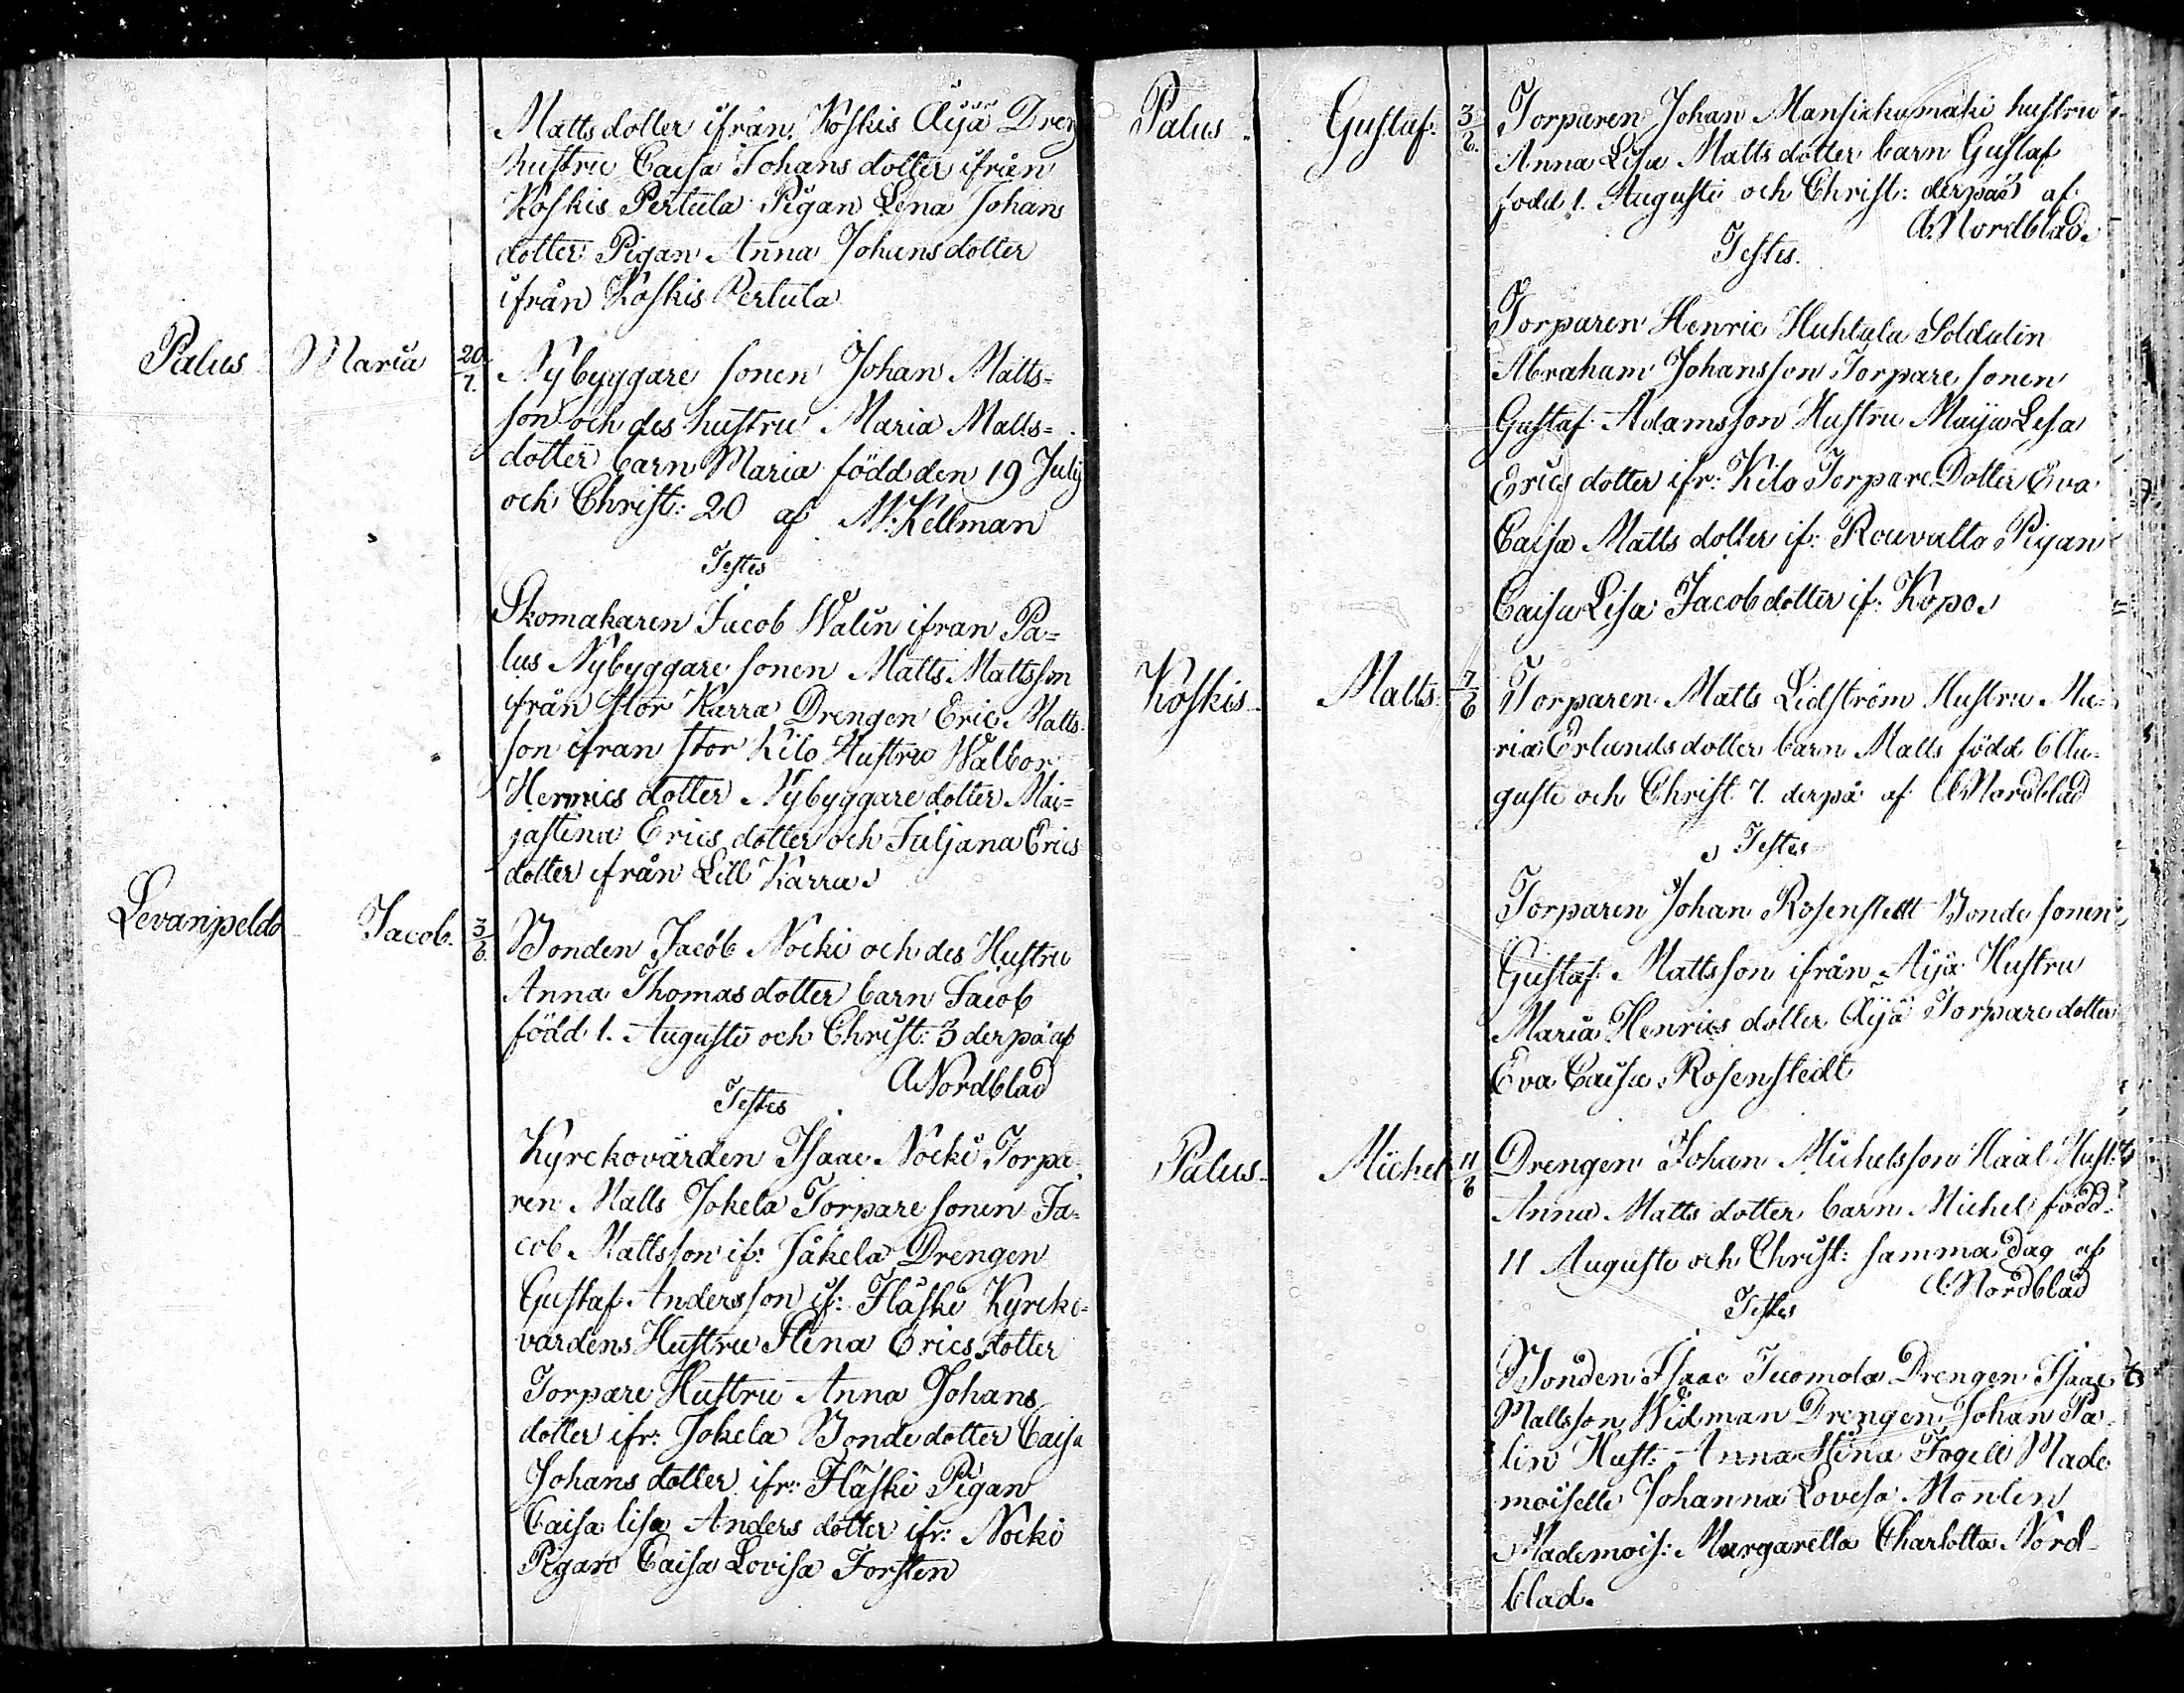 Matts dotter ifrån Koskis Äijä Dreng
hustru Caisa Johans dotter ifrån
Koskis Pertula Pigan Lena Johans
dotter Pigan Anna Johans dotter
ifrån Koskis Pertula
Palus Maria 20/7. Nybyggare sonen Johan Matts=
son och des hustru Maria Matts=
dotter barn Maria född den 19 July
och Christ: 20 af M: Kellman
Testes
Skomakaren Jacob Walin ifran Pa=
lus Nybyggare sonen Matts Mattsson
ifrån stor Karra Drengen Eric Matts
son ifran stor Kilo Hustru Walbor
Henrics dotter Nybyggare dotter Mai=
jastina Erics dotter och Juljana Erics
dotter ifrån Lill Karra
Levanpeldo Jacob. 3/6. Bonden Jacob Nocki och des Hustru
Anna Thomas dotter barn Jacob
född 1. Augusti och Christ: 3 derpå af
A Nordblad
Testes
Kyrckovärden Isaac Nocki Torpa
ren Matts Jokela Torpare sonen Ja=
cob Mattsson if: Jåkela Drengen
Gustaf Andersson if: Flaski Kyrcko=
vardens Hustru Stina Erics dotter
Torpare Hustru Anna Johans
dotter ifr: Jokela Bonde dotter Caisa
Johans dotter ifr: Flaski Pigan
Caisa lisa Anders dotter ifr: Nocki
Pigan Caisa Lovisa Forsten
Palus Gustaf 3/6. Torparen Johan Mansickamäki hustru
Anna Lisa Matts dotter barn Gustaf
född 1. Augusti och Christ: derpå 3 af
A. Nordblad.
Testes.
Torparen Henric Huhtala Soldaten
Abraham Johansson Torpare sonen
Gustaf Adamsson Hustru Maija Lesa
Erics dotter ifr: Kilo Torpare Dotter Eva
Caisa Matts dotter if: Rouvalto Pigan
Caisa Lisa Jacob dotter if: Kopo
Koskis Matts 7/6 Torparen Matts Lidström Hustru Ma=
ria Erlunds dotter barn Matts född 6 Au=
gusti och Christ 7. derpå af A Nordblad
Testes
Torparen Johan Rosenstedt Bonde sonen
Gustaf Mattsson ifrån Äijä Hustru
Maria Henrics dotter Äijä Torpare dotter
Eva Caisa Rosenstedt
Palus Michel 11/6 Drengen Johan Michelsson Haal Hust:
Anna Matts dotter barn Michel född
11 Augusti och Christ: samma dag af
A: Nordblad
Testes
Bonden Isaac Tuomola Drengen Isaac
Mattsson Widman Drengen Johan Pa
lin Hust: Anna Stina Fogell Made
moiselle Johanna Lovisa Monlen
Mademois: Margaretta Charlotta Nord
blad.